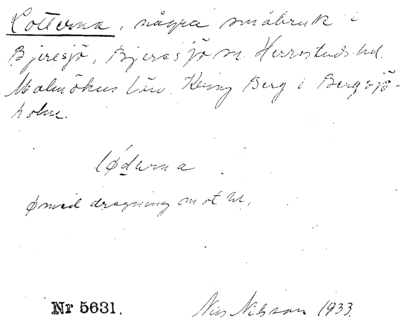 Lotterna, några småbruk i
Bjeresjö, Bjeresjö sn. Herrestads hd.
Malmöhus län. Kring Berg i Bergsjö-
holm.
lø̄derna
ø med dragning mot ur.
Nr 5631.
Nils Nilsson 1933.